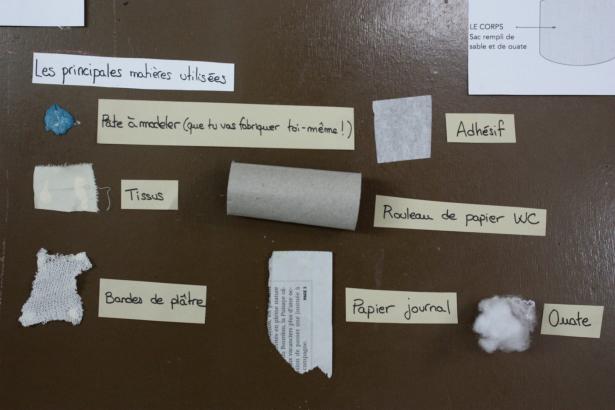 LE CORPS
Sac rempli de
sable et de ouate
Les principales matières utilisées
Pâte à modeler (que tu vas fabriquer toi-même !)
Adhésif
Tissus
Rouleau de papier WC
Bandes de plâtre
Papier journal
Ouate
PAGE 3